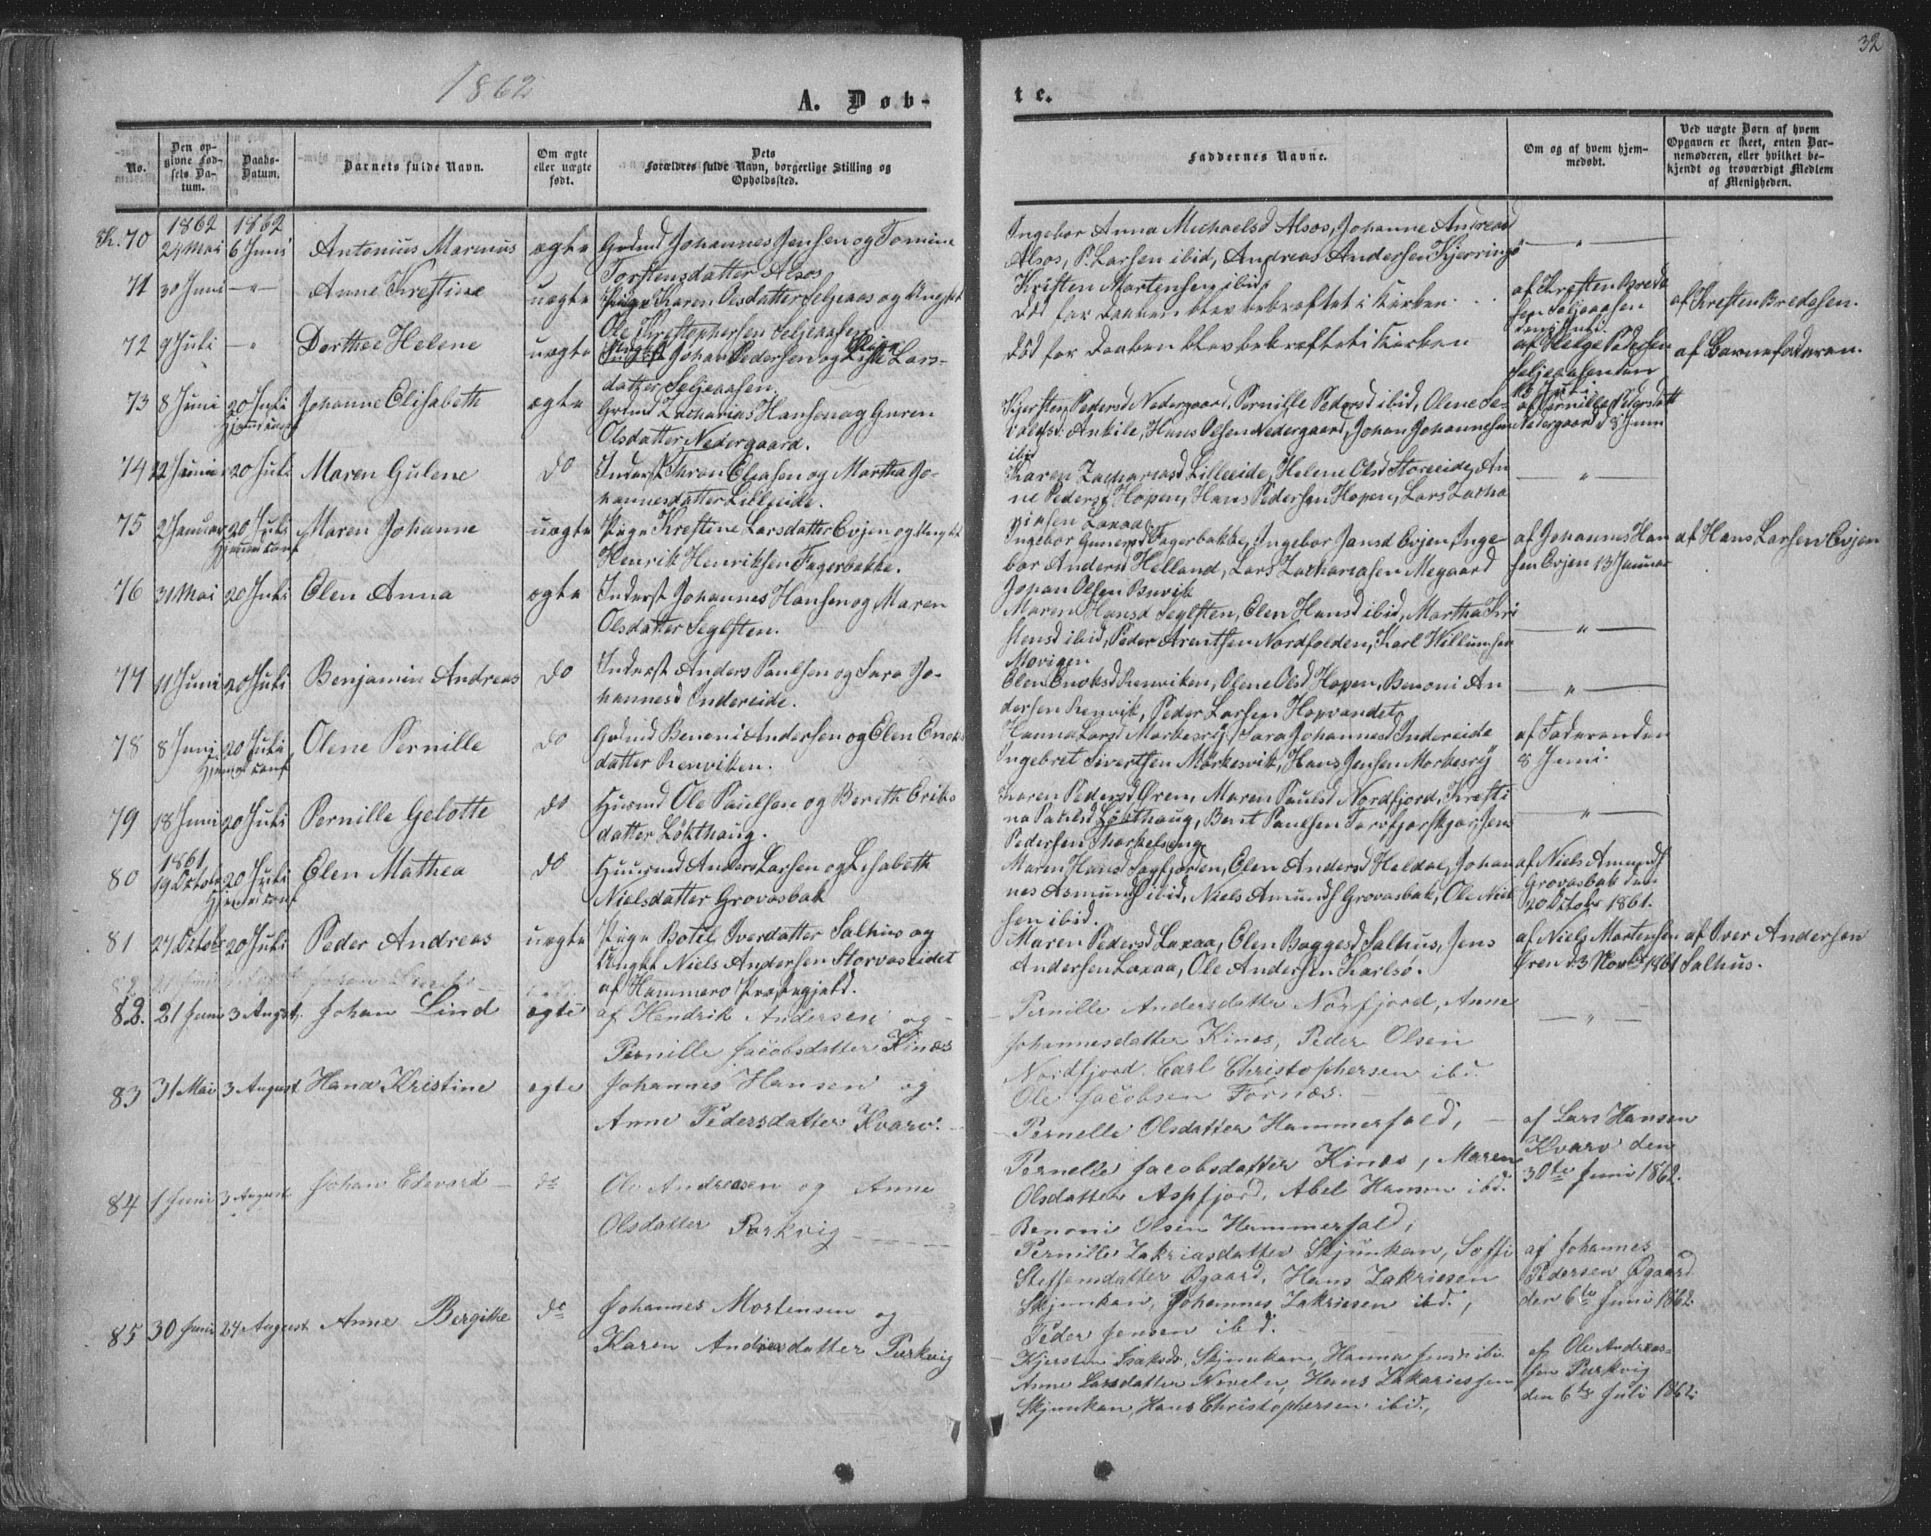 32
1862
A. Døb-
te.
No.
Den op-
givne Fød-
sels Da-
tum.
Daabs-
Datum.
Barnets fulde Navn.
Om ægte
eller uægte
født.
Dets
Forældres fulde Navn, borgerlige Stilling og
Opholdssted.
Faddernes Navne.
Om og af hvem hjem-
medøbt.
Ved uægte Børn af hvem
Opgaven er skeet, enten Bar-
nemoderen, eller hvilket be-
kjendt og troværdigt Medlem
af Menigheden.
1862 1862
70 24 Mai 6 Juni Antonius Marenus ægte Grdmd Johannes Jensen og Tomine
Torstensdatter Alsos
Ingebor Anna Michaelsd Alsos, Johanne Andreasd
Alsos, P. Larsen ibid, Andreas Andersen Kjerringø
Kristen Mortensen ibid.
71 30 Juni — " Anne Krestine uægte Pige Karen Olsdatter Seljeaas og Ungkl
Ole Kristophersen Seljeaasen
Død før Daaben blev bekræftet i Kirken
af Kresten Brede
sen Seljeaasen
af Kresten Bredesen.
72 9 Juli — " Dorthee Helene uægte Ungkl Johan Pedersen og Pige Lars-
datter Seljeaasen.
Død før Daaben blev bekræftet i Kirken
af Helge Pedersen
Seljeaasen den
af Barnefaderen.
73 8 Juni 20 Juli Johanne Elisabeth ægte Grdmd Zacharias Hansen og Guren
Hjemmed conf
Olsdatter Nedergaard.
Kjersten Pedersd Nedergaard, Pernille Pedersd ibid, Olene Se-
valdsd Ankile, Hans Olsen Nedergaard, Johan Johannesen
ibid
af Pernille Pedersdatt
Nedergaard d 8 Juni
74 12 Juni 20 Juli Maren Gulene do Inderst Thron Eliasen og Martha Jo-
hannesdatter Lilleeide.
Karen Zachariasd Lilleeide, Helene Olsd Storeeide, An
ne Pedersd Hopen, Hans Pedersen Hopen, Lars Zacha
riasen Laxaa
— " —
75 2 Januar 20 Juli Maren Johanne uægte Pige Krestine Larsdatter Evjen og Ungkl
Hjemmed conf
Henrik Henriksen Fagerbakke.
Ingebor Gunersd Fagerbakke, Ingebor Jansd Evjen, Inge-
bor Andersd Helland, Lars Zachariasen Megaard
Johan Olsen Buvik
af Johannes Han
sen Evjen 13 Januar
af Hans Larsen Evjen
76 31 Mai 20 Juli Elen Anna ægte Inderst Johannes Hansen og Maren
Olsdatter Seglsten.
Maren Hansd Seglsten, Elen Hansd ibid, Martha Kri
stensd ibid, Peder Arentsen Nordfolden, Karl Willumsen
Movigen
— " —
77 11 Juni 20 Juli Benjamin Andreas do Inderst Anders Paulsen og Sara Jo-
hannesd Indereide.
Elen Enoksd Renviken, Olene Olsd Hopen, Benoni An
dersen Renvik, Peder Larsen Hopvandet
— " —
78 8 Juni 20 Juli Olene Pernille do Grdmd Benoni Andersen og Elen Enoks
Hjemmed conf
datter Renviken.
Hanna Larsd Morkesry, Sara Johannesd Indereide
Ingebret Sivertsen Morkesvik, Hans Jensen Morkesry
af Faderen den
8 Juni.
79 18 Juni 20 Juli Pernille Gelotte do Husmd Ole Paulsen og Bereth Eriks
datter Løkthaug.
Karen Pedersd Øren, Maren Paulsd Nordfjord, Kresti
na Paulsd Løkthaug, Beret Paulsen
Pedersen
— " —
1861
80 19 Octobr 20 Juli Elen Mathea do Huusmd Anders Larsen og Lisabeth
Hjemmed conf
Nielsdatter Grovasbak
Maren Hansd Sagfjorden, Elen Andersd Heldal, Johan
nes Asmunds ibid, Niels Amunds Grovasbak, Ole Niel
sen ibid.
af Niels Amunds
Grovasbak den
20 Octobr 1861.
81 27 Octobr 20 Juli Peder Andreas uægte Pige Botil Iverdatter Salhus og
Ungkl Niels Andersen Storvaseidet
af Hammerø Præstegjeld.
Maren Pedersd Laxaa, Elen Baggesd Salhus, Jens
Andersen Laxaa, Ole Andersen Karlsø.
af Niels Mortensen
Øren d. 3 Novbr 1861
af Iver Andersen
Salhus.
82. 21 Juni 3 August. Johan Lind ægte af Hendrik Andersen og
Pernille Jacobsdatter Kinæs
Pernille Andersdatter Norfjord, Anne
Johannesdatter Kines, Peder Olsen
Nordfjord. Carl Christophersen ibd.
Ole Jacobsen Fornæs.
— " —
83 31 Mai 3 August Hana Kristine egte Johannes Hansen og
Anne Pedersdatter Kvarv.
Pernelle Olsdatter Hammerfald,
Pernelle Jacobsdatter Kinæs, Maren
Olsdatter Aspfjord, Abel Hansen ibd.
Benoni Olsen Hammerfald,
af Lars Hansen
Kvarv den
30te Juni 1862.
84 1 Juni 3 August Johan Edevard do Ole Andreasen og Anne
Olsdatter Parkvig
Pernille Zakriasdatter Skjunkan, Soffi
Steffensdatter Øgaard, Hans Zakriesen
Skjunkan, Johannes Zakriesen ibd.,
Peder Jensen ibid.
af Johannes
Pedersen Øgaard
den 6te Juni 1862
85 30 Juni 24 August Anne Bergitte do Johannes Mortensen og
Karen Andreasdatter Parkvig
Kjersten Isaksd. Skjunkan, Hanna Jensd ibd.
Anne Larsdatter Noveln, Hans Zakariessen
Skjunkan, Hans Christophersen ibid.,
af Ole Andreas-
sen Parkvig
den 6te Juli 1862.